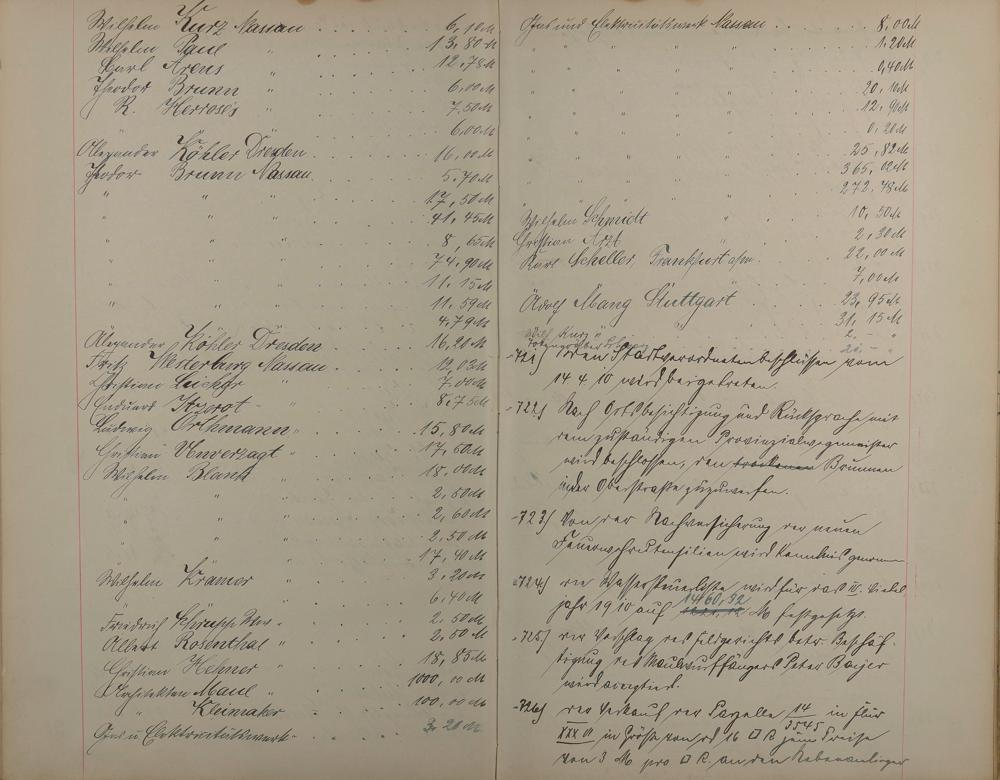 Wilhelm Kurz Nassau 6,10 M
Wilhelm Paul " 13,80 M
Carl Arens " 12,78 M
Theodor Brunn " 6,00 M
R. Herrosés " 7,50 M
6,00 M
Alexander Köhler Dresden 16,00 M
Theodor Brunn Nassau 5,70 M
" " " 17,50 M
41,45 M
" " " 8,65 M
" " " 74,90 M
" " " 11,15 M
" " " 11,59 M
4,79 M
Alexander Köhler Dresden 16,20 M
Fritz Westerburg Nassau 12,03 M
Christian " 7,00 M
8,75 M
Ludwig Orthmann " 15,80 M
Christian Unverzagt " 17,60 M
Wilhelm Blank " 18,00 M
" " " 2,50 M
" " " 2,60 M
" " " 2,50 M
17,40 M
Wilhelm Kramer " 3,20 M
6,40 M
Friedrich 2,50 M
Albert Rosenthal " 2,50 M
Christian Hehner " 18,85 M
Architekten Maul " 1000,00 M
" Kleimaker 100,00 M
Gas u Elektricitätswerk 3,20 M
Gas und Elektricitätswerk Nassau 8,00 M
" " " " 1,20 M
" " " " 0,40 M
" " " " 20,10 M
" " " " 12,90 M
" " " " 0,20 M
" " " " 25,82 M
365,02 M
272,48 M
Wilhelm Schmidt " 10,50 M
Christian Arzt " 2,30 M
Karl Scheller, Frankfurt a/m. 22,00 M
7,00 M
Adolf Mang Stuttgart 23,95 M
31,15 M
Adolf Kurz 2,- "
-721) Den Stadtverordnetenbeschlüssen vom
14 4 10 wird beigetreten.
-722) Nach Ortsbesichtigung und Rücksprache mit
dem zuständigen Provinzialwegemeister
wird beschlossen, den trockenen Brunnen
in der Oberstraße zuzuwerfen.
-723) Von der Nachversicherung der neuen
Feuerwehrutensilien wird Kenntnis genommen
-724) die Wassersteuerliste wird für das IV. Viertel
jahr 1910 auf 1460,92 M festgesetzt.
-725) der Vorschlag des Feldgerichts betr. Beschäf-
tigung des Maulwurffängers Peter Baijer
wird
-726) der Verkauf der Parzelle 14/3545 in Flur
XXXVI in Größe von rd 16 □ R. zum Preise
von 3 M pro □ R. an den